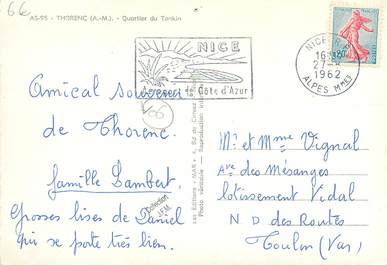 66
AS-95 - THORENC (A.-M.) - Quartier du Tonkin
NICE
Côte d'Azur
NICE R.P.
16H30
27-8
1962
ALPES MMES
Amical souvenir
de Thorenc.
famille Lambert,
Grosses bises de Daniel
qui se porte très bien.
66
Collection
J.F.M.
Les Editions "MAR", Bd de Cimiez
Photo véritable - Reproduction interdite
Mr et Mme Vignal
Ave des Mésanges
lotissement Vidal
N D des Routes
Toulon (Var)